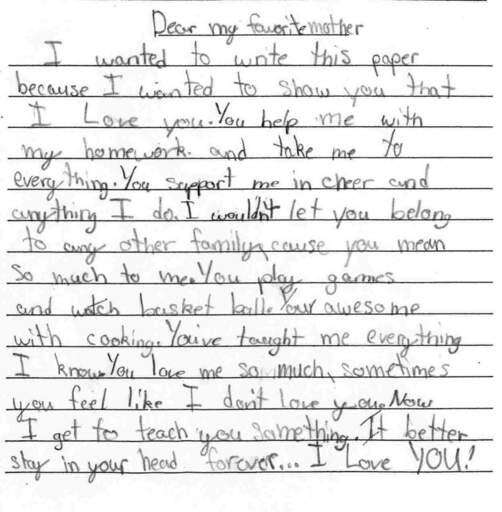 Dear my favorite mother
I wanted to write this paper
because I wanted to show you that
I Love you. You help me with
my homework. and take me to
everything. You support me in cheer and
anything I do. I wouldn't let you belong
to any other family, cause you mean
so much to me. You play games
and watch basket ball. Your awesome
with cooking. You've taught me everything
I know. You love me so much, sometimes
you feel like I don't love you. Now
I get to teach you something. It better
stay in your head forever... I Love YOU!